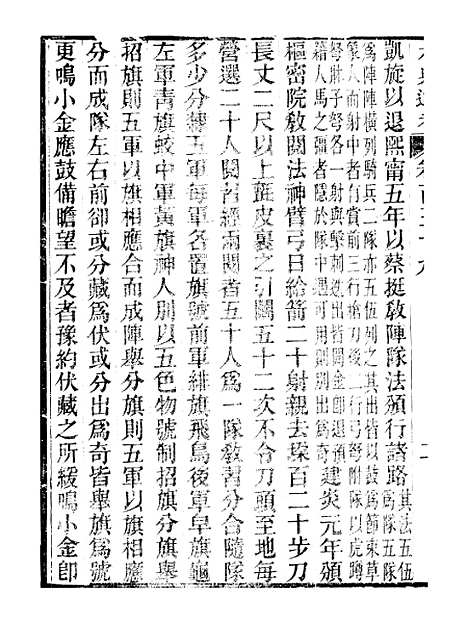 凱旋以退熙甯五年以蔡挺敎陣隊法頒行諸路其法五伍
爲隊五隊
爲陣陣橫列騎兵二隊亦五伍列之其出皆以鼓爲節束草
象人而射中者有賞前三行槍刀後二行弓弩附以虎蹲
弩牀子弩各一射與擊刺迭出皆聞金卽退預
籍人馬之驍者隱於隊中遇可用則別出爲奇建炎元年頒
樞密院敎閱法神臂弓日給箭二十射親去垜百二十步刀
長丈二尺以上氈皮裹之引鬬五十二次不合刀頭至地每
營選二十人閱習經兩閱者五十人爲一隊敎習分合隨隊
多少分隸五軍每軍各置旗號前軍緋旗飛鳥後軍皁旗龜
左軍青旗蛟中軍黃旗神人別以五色物號制招旗分旗舉
招旗則五軍以旗相應合而成陣舉分旗則五軍以旗相應
分而成隊左右前卻或分藏爲伏或分出爲奇皆舉旗爲號
更鳴小金應鼓備瞻望不及者豫約伏藏之所緩鳴小金卽